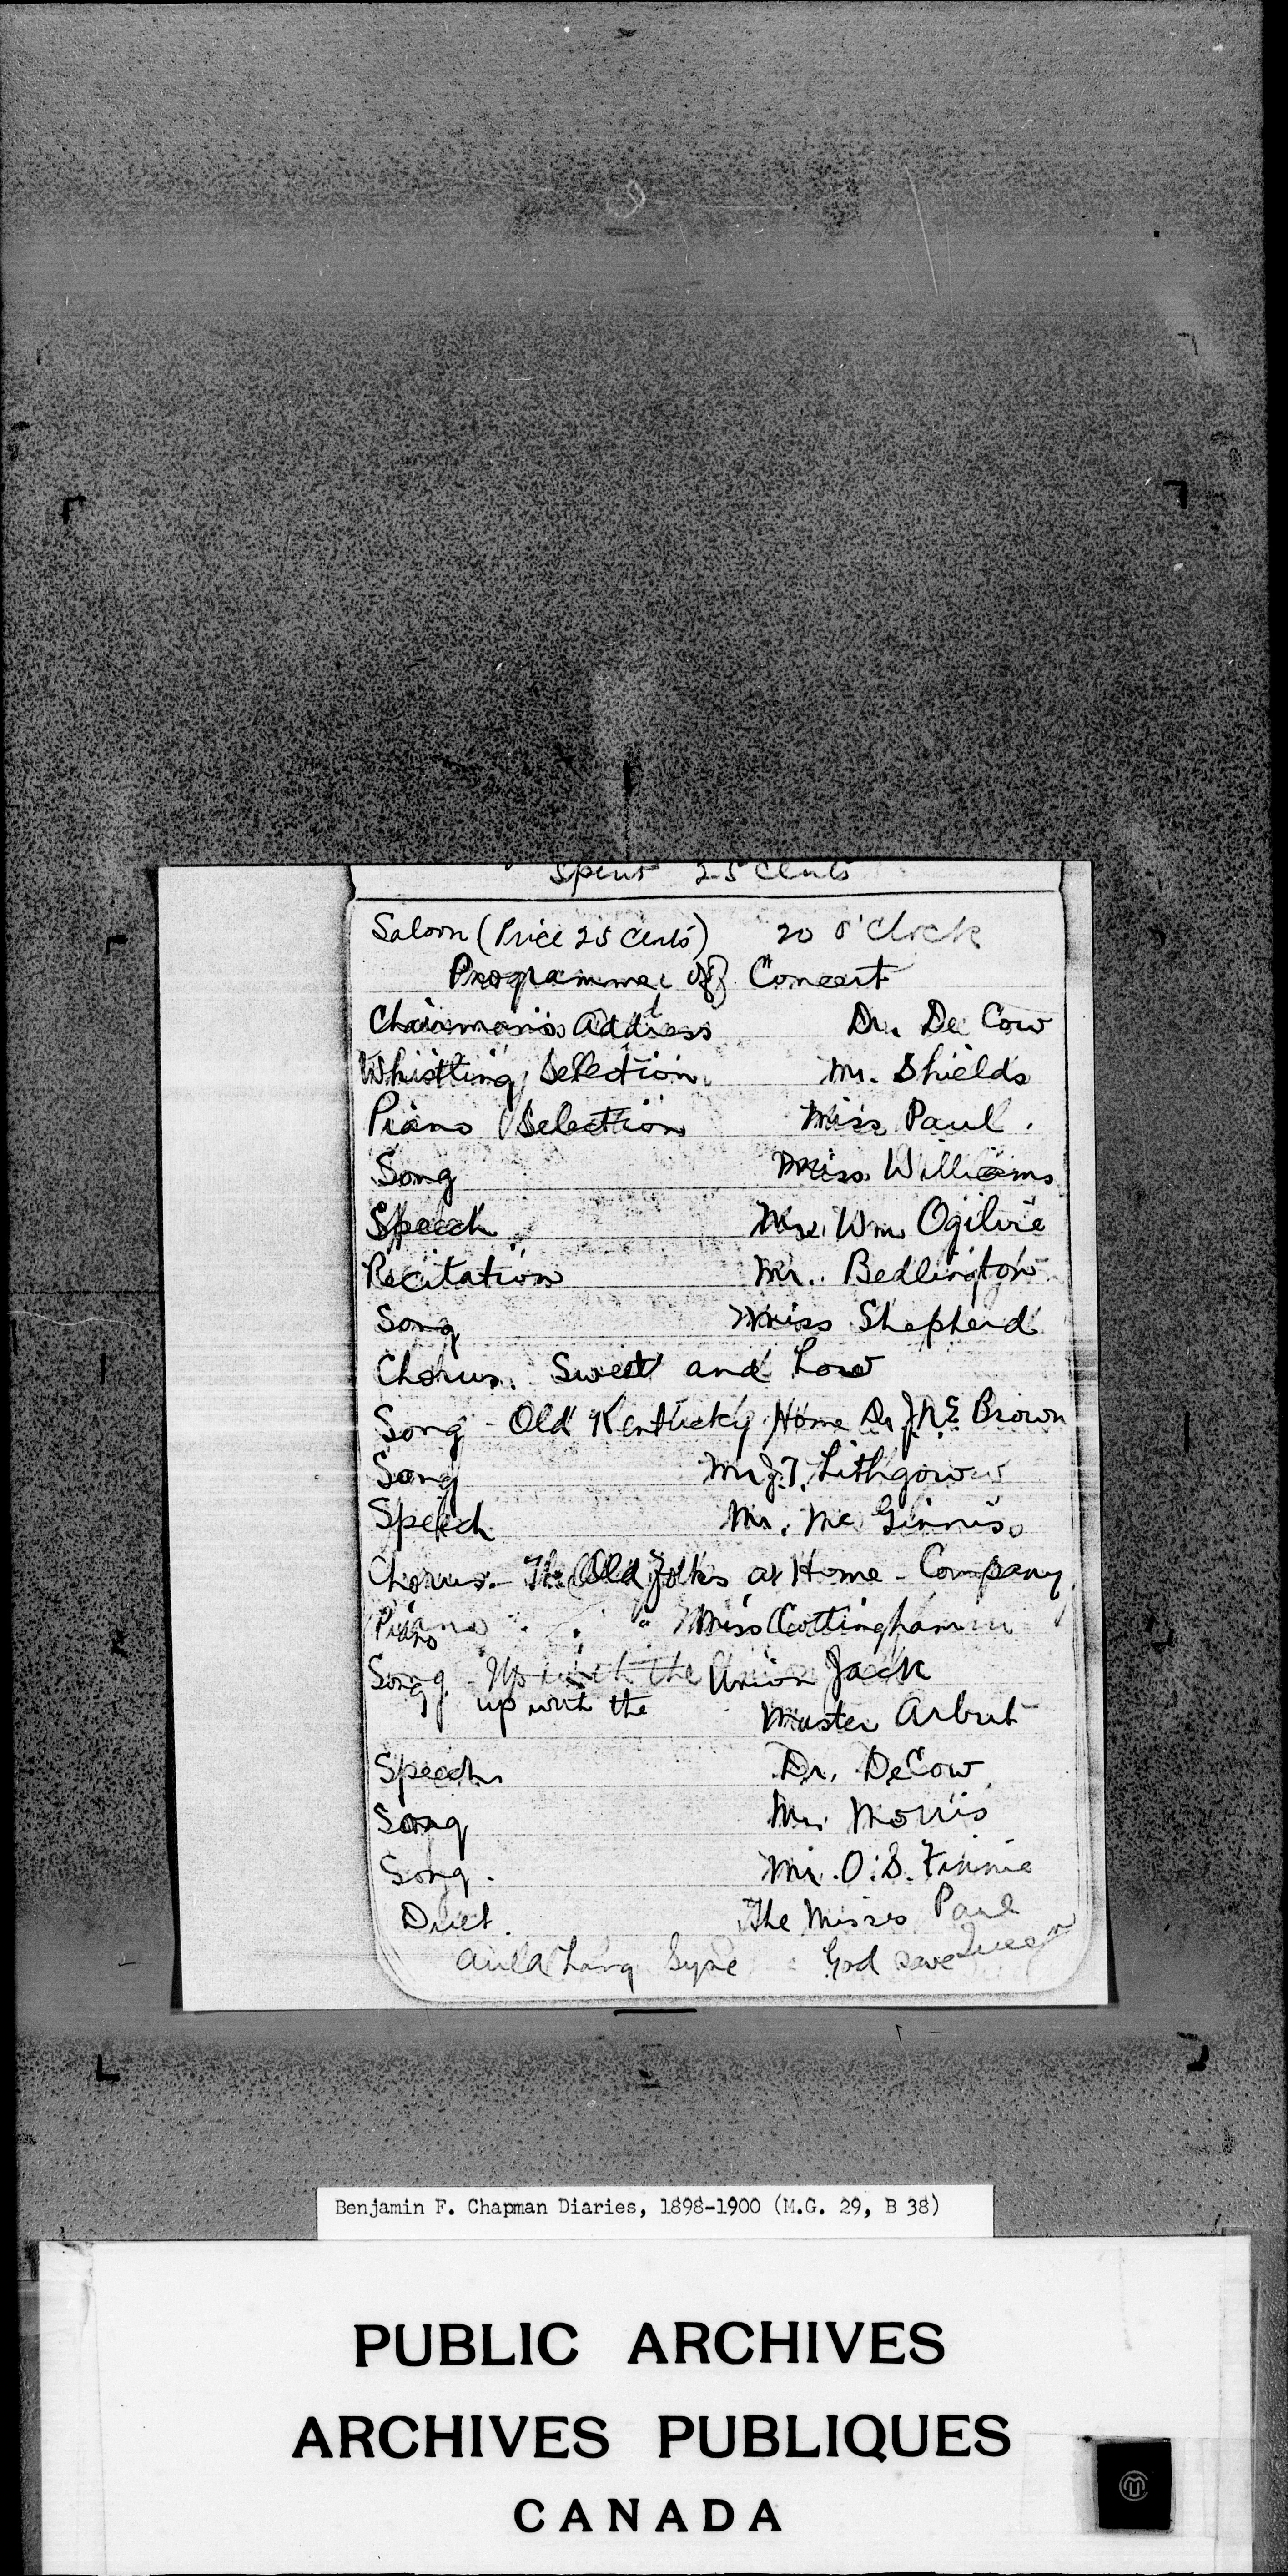 Spent 25 cents
Saloon (Price 25 cents) 20 o'clock
Programme of Concert
Chairman's Address Dr. De Cow
Whistling Selection Mr. Shields
Piano Selection Miss Paul.
Song Miss Williams
Speech Wm Ogilvie
Recitation Mr. Bedlington
Song Miss Shepherd
Chorus. Sweet and Low
Song - Old Kentucky Home Dr Brown
Song Mr J.T. Lithgow
Speech Mr. Mc Ginnis
Chorus. - The Old Folks at Home - Company
Piano " Miss Cottingham
Song Up with the Union Jack
up with the Master Arbut
Speech Dr. DeCow
Song Mr. Morris
Song. Mr. O. S. Finnie
Duet. The Misses Paul
Auld Lang Syne God save Queen
Benjamin F. Chapman Diaries, 1898-1900 (M.G. 29, B 38)
PUBLIC ARCHIVES
ARCHIVES PUBLIQUES
CANADA